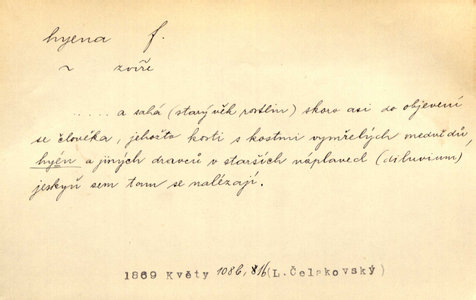 hyena f.
~ zvíře
..... a sahá (starý věk rostlin) skoro asi do objevení
se člověka, jehožto kosti s kostmi vymřelých medvědů,
hyén a jiných dravců v starších náplavech (diluvium)
jeskyň sem tam se nalézají.
1869 Květy 108b, (L.Čelakovský)